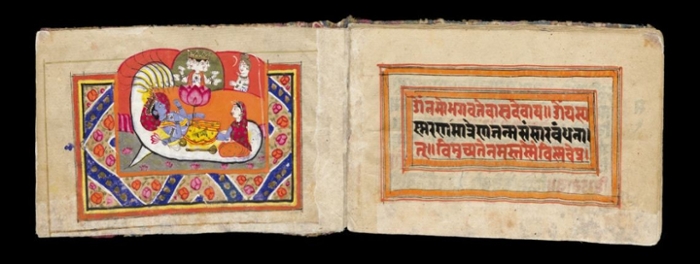 ॐनमोभगवतेवासुदेवाय॥ॐयस्य
स्मरणमात्रेणजन्मसंसारबंधना।
त्॥विमुच्यतेनमस्तस्मैविष्णवेप्र।